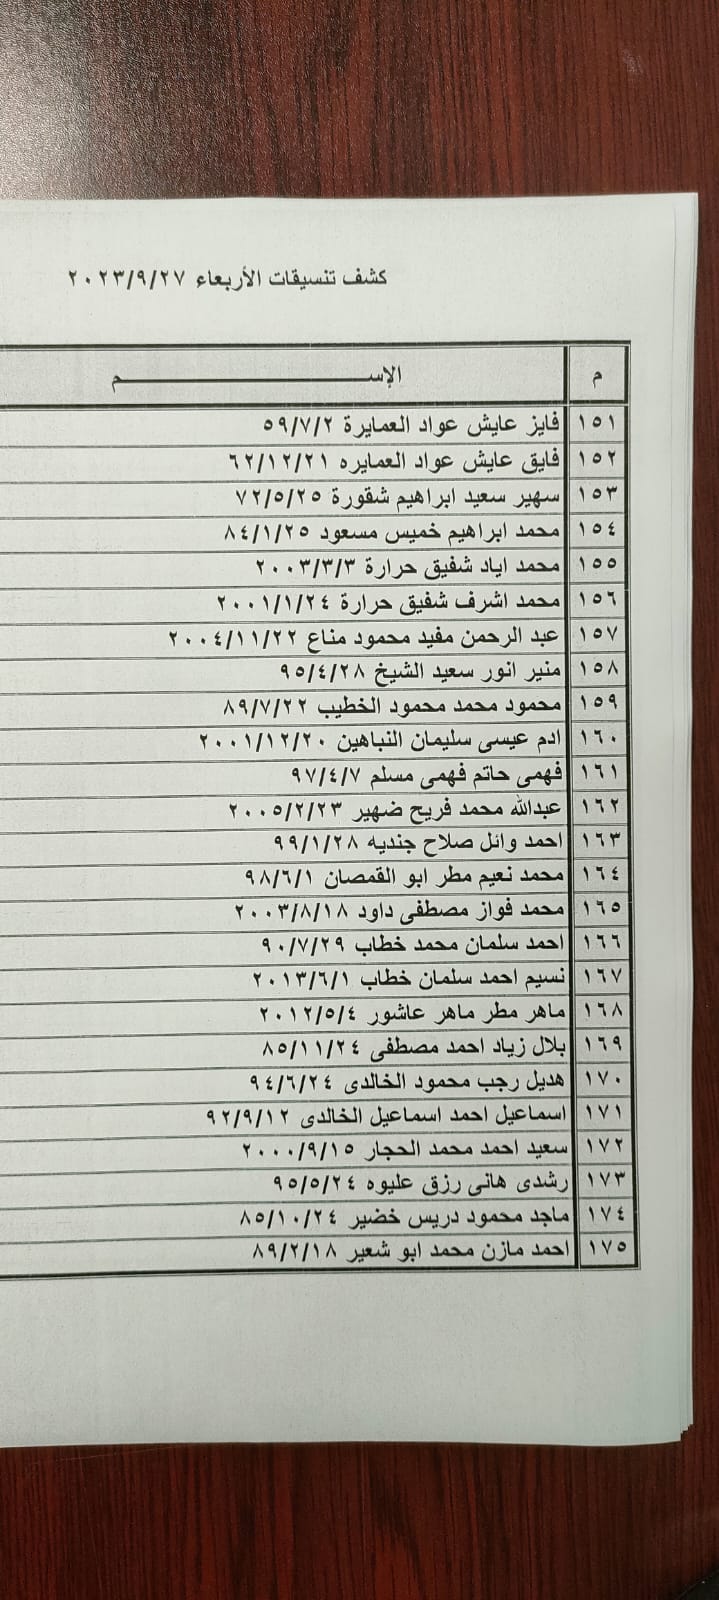 كشف تنسيقات الأربعاء ٢٠٢٣/٩/٢٧
م الإســـــــــــــــــــــــم
١٥١ فايز عايش عواد العمايرة ٥٩/٧/٢
١٥٢ فايق عايش عواد العمايره ٦٢/١٢/٢١
١٥٣ سهير سعيد ابراهيم شقورة ٧٢/٥/٢٥
١٥٤ محمد ابراهيم خميس مسعود ٨٤/١/٢٥
١٥٥ محمد اياد شفيق حرارة ٢٠٠٣/٣/٣
١٥٦ محمد اشرف شفيق حرارة ٢٠٠١/١/٢٤
١٥٧ عبد الرحمن مفيد محمود مناع ٢٠٠٤/١١/٢٢
١٥٨ منير انور سعيد الشيخ ٩٥/٤/٢٨
١٥٩ محمود محمد محمود الخطيب ٨٩/٧/٢٢
١٦٠ ادم عيسى سليمان النباهين ٢٠٠١/١٢/٢٠
١٦١ فهمى حاتم فهمى مسلم ٩٧/٤/٧
١٦٢ عبدالله محمد فريح ضهير ٢٠٠٥/٢/٢٣
١٦٣ احمد وائل صلاح جنديه ٩٩/١/٢٨
١٦٤ محمد نعيم مطر ابو القمصان ٩٨/٦/١
١٦٥ محمد فواز مصطفى داود ٢٠٠٣/٨/١٨
١٦٦ احمد سلمان محمد خطاب ٩٠/٧/٢٩
١٦٧ نسيم احمد سلمان خطاب ٢٠١٣/٦/١
١٦٨ ماهر مطر ماهر عاشور ٢٠١٢/٥/٤
١٦٩ بلال زياد احمد مصطفى ٨٥/١١/٢٤
١٧٠ هديل رجب محمود الخالدى ٩٤/٦/٢٤
١٧١ اسماعيل احمد اسماعيل الخالدى ٩٢/٩/١٢
١٧٢ سعيد احمد محمد الحجار ٢٠٠٠/٩/١٥
١٧٣ رشدى هانى رزق عليوه ٩٥/٥/٢٤
١٧٤ ماجد محمود دريس خضير ٨٥/١٠/٢٤
١٧٥ احمد مازن محمد ابو شعير ٨٩/٢/١٨